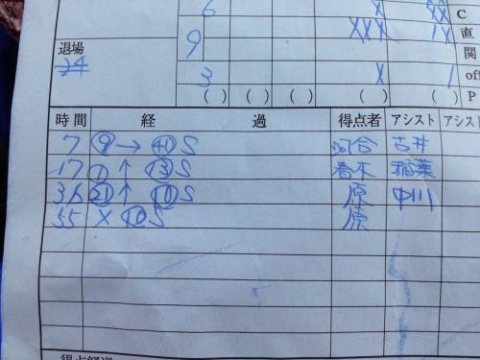 6 X XX C
XXX 1X 直
9 関
退場
24
3 X 1 off
( ) ( ) ( ) ( ) ( ) P
時間 経 過 得点者 アシスト アシスト
7 ⑨ → ㊵ S 河合 古井
17 ① ↑ ⑬ S 春木 稲葉
36 ㉑ ↑ ⑩ S 原 中川
55 X ⑩ S 原